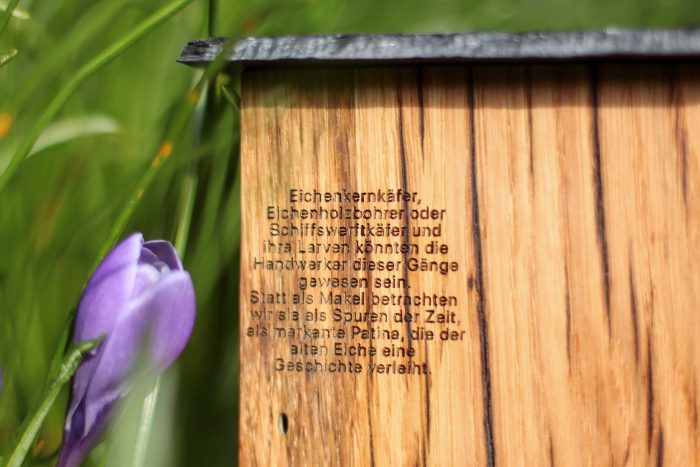 Eichenkernkäfer,
Eichenholzbohrer oder
Schiffswerftkäfer und
ihre Larven könnten die
Handwerker dieser Gänge
gewesen sein.
Statt als Makel betrachten
wir sie als Spuren der Zeit,
als markante Patina, die der
alten Eiche eine
Geschichte verleiht.